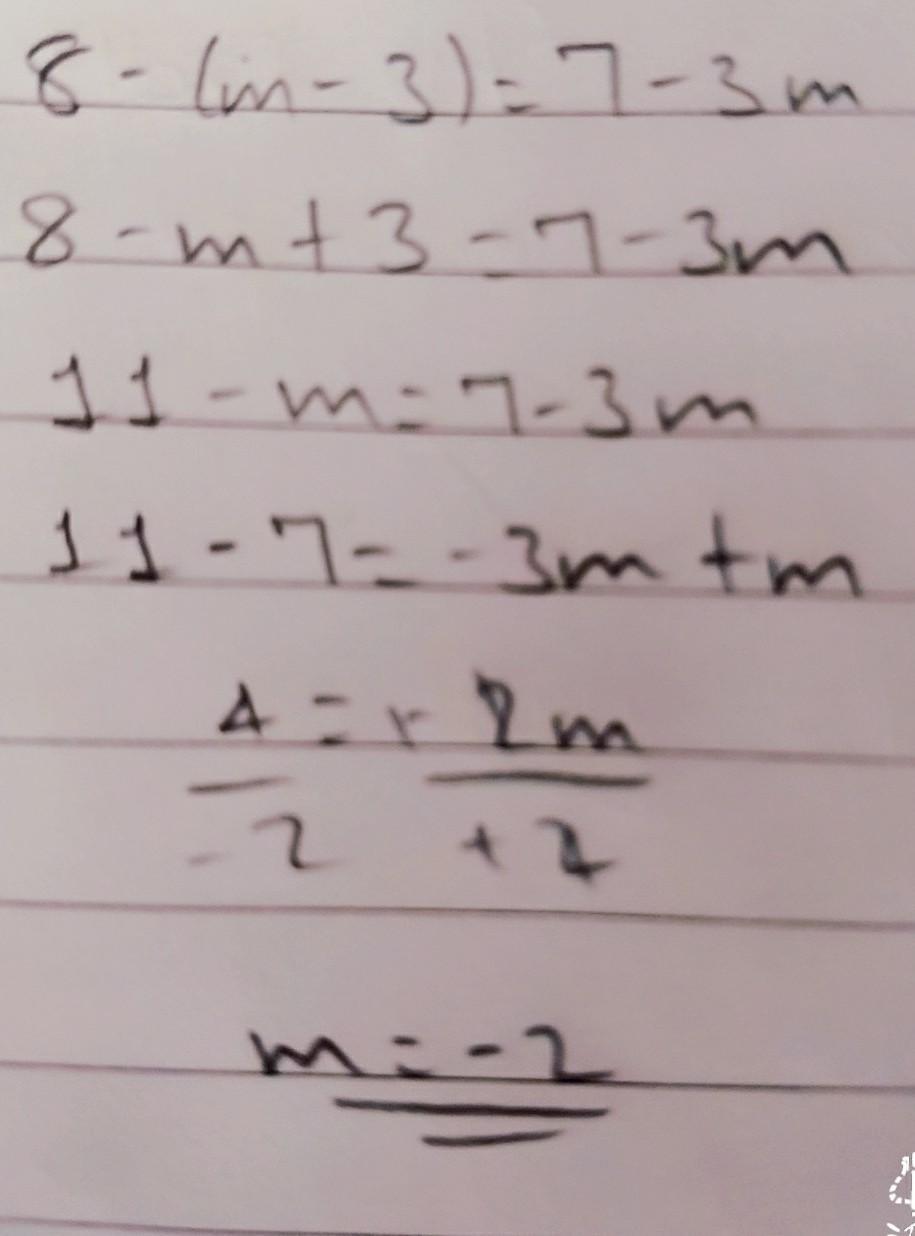 8 - (m - 3) = 7 - 3m
8 - m + 3 = 7 - 3m
11 - m = 7 - 3m
11 - 7 = - 3m + m
4 = - 2m
- 2 + 2
m = - 2